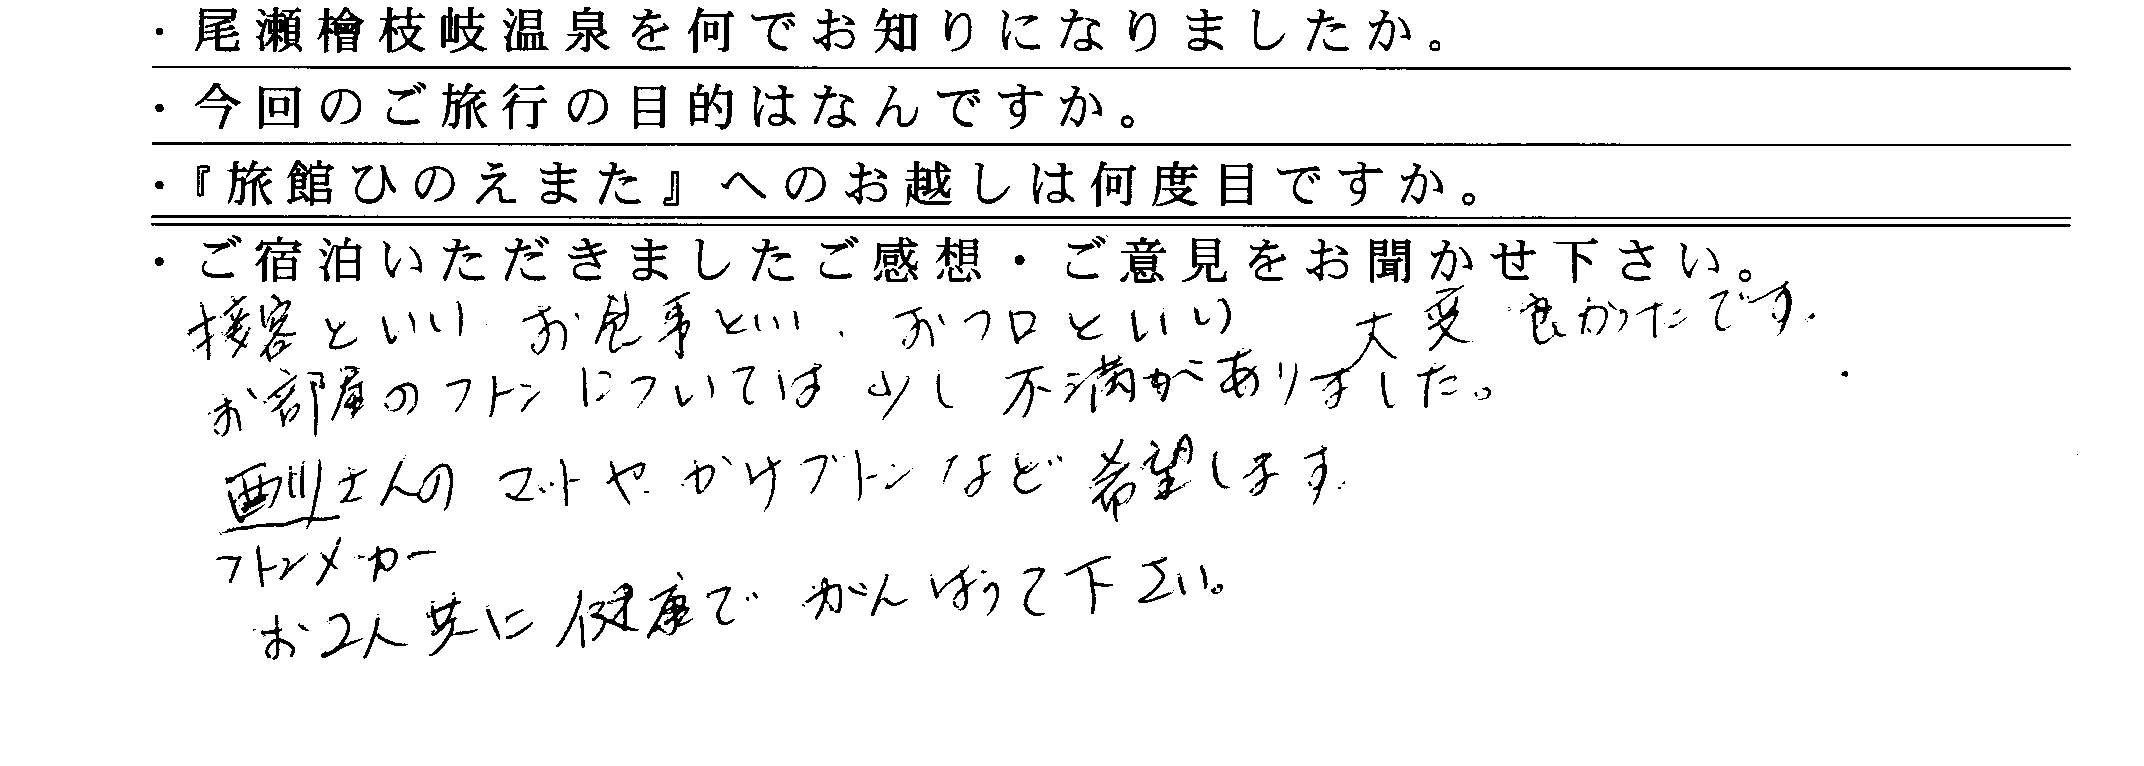 ・尾瀬檜枝岐温泉を何でお知りになりましたか。
・今回のご旅行の目的はなんですか。
・『旅館ひのえまた』へのお越しは何度目ですか。
・ご宿泊いただきましたご感想・ご意見をお聞かせ下さい。
接客といい お食事といい、おフロといい 大変 良かったです.
お部屋のフトンについては 少し 不満がありました。
西川さんの マットや かけブトン など 希望します.
フトンメーカー
お2人共に 健康で がんばって下さい。